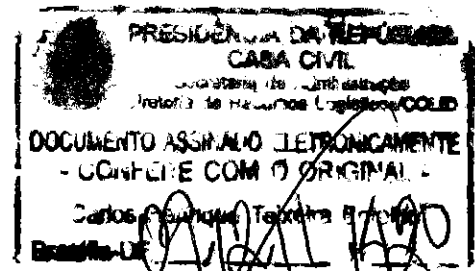 PRESIDÊNCIA DA REPÚBLICA
CASA CIVIL
Secretaria de Administração
Diretoria de Recursos Logísticos/COLID
DOCUMENTO ASSINADO ELETRONICAMENTE
- CONFERE COM O ORIGINAL -
Carlos Henrique Teixeira
Brasília-DF